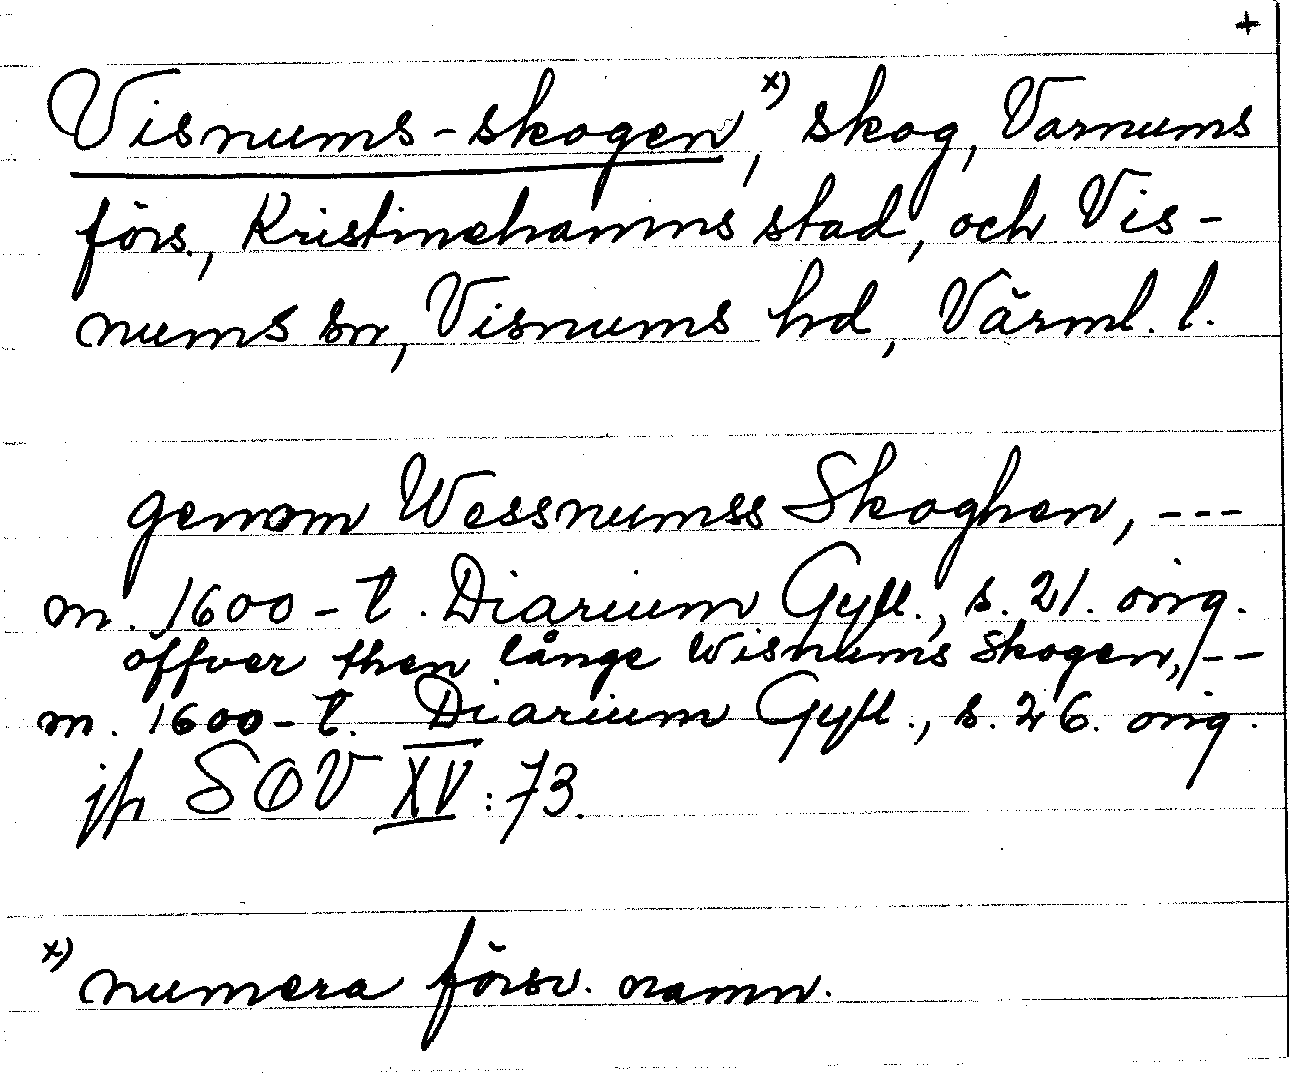 +
Visnums-skogen,x) skog, Varnums
förs., Kristinehamns stad, och Vis-
nums sn, Visnums hd, Värml. l.
genom Wessnumss Skoghen, ---
m. 1600-t. Diarium Gyll., s. 21. orig.
öffver then långe Wisnums Skogen, ---
m. 1600-t. Diarium Gyll., s. 26. orig.
jfr SOV XV: 73.
x) numera försv. namn.